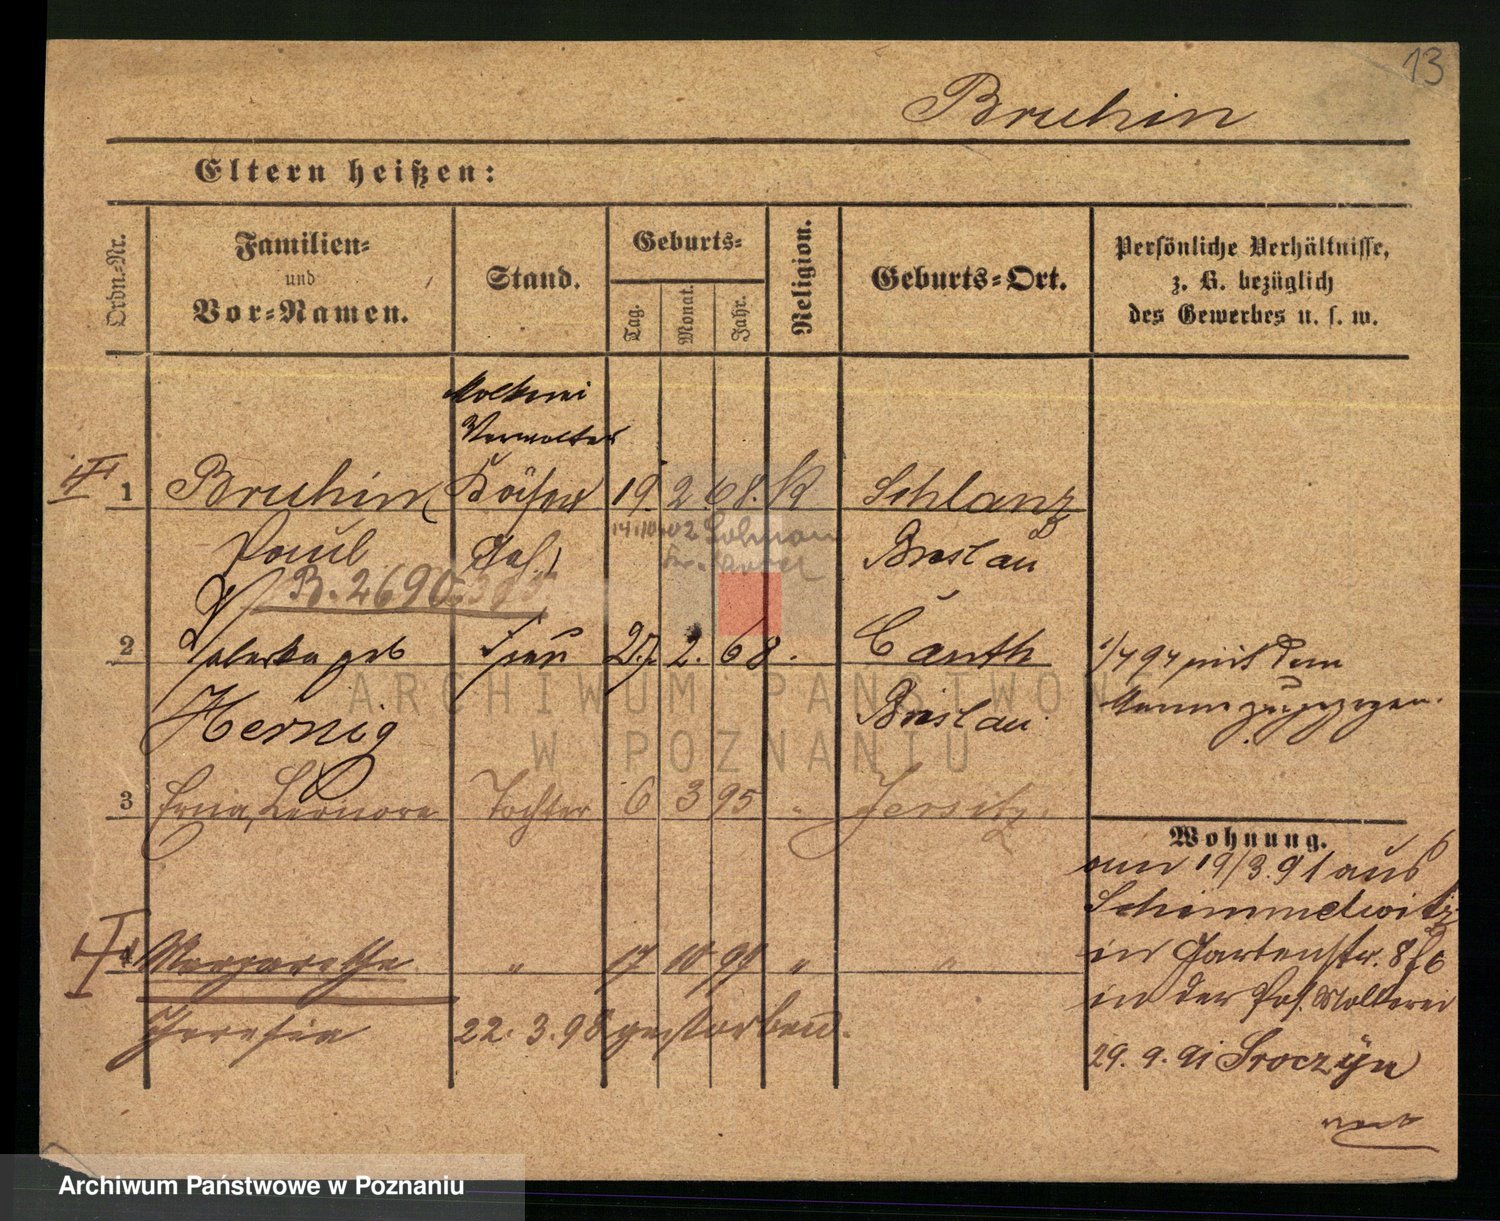 13
Bruhin
Eltern heißen:
Ordn.-Nr.
Familien-
und
Vor-Namen.
Stand.
Geburts-
Tag.
Monat.
Jahr.
Religion.
Geburts-Ort.
Persönliche Verhältnisse,
z. B. bezüglich
des Gewerbes u. s. w.
Molkerei
Verwalter
1 Bruhin 19. 2. 68. K Schlanz
14.10.02
Paul Breslau
B. 2690
2 geb Frau 27. 2. 68. Canth
Hernig Breslau
1/7 94 mit dem
Manne zugezogen.
3 Erna, Leonore Tochter 6 3 95 " Jersitz.
Wohnung.
am 19/3. 91 aus
Schimmelwitz
in Gartenstr. 8
in der Pos. Molkerei
4 Margarethe " 17 10 97 " "
Theresia 22. 3. 98 gestorben.
29. 9. 91 Sroczyn
ARCHIWUM PAŃSTWOWE
W POZNANIU
Archiwum Państwowe w Poznaniu